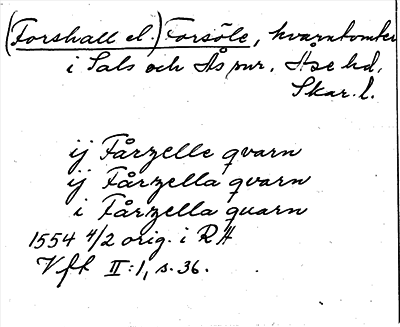 (Forshall el.) Forsöle, kvarntomter
i Sals och Ås snr. Åse hd.
Skar. l.
ij Fårzelle qvarn
ij Fårzella qvarn
i Fårzella quarn
1554 4/2 orig. i RA
Vfk II:1, s. 36.